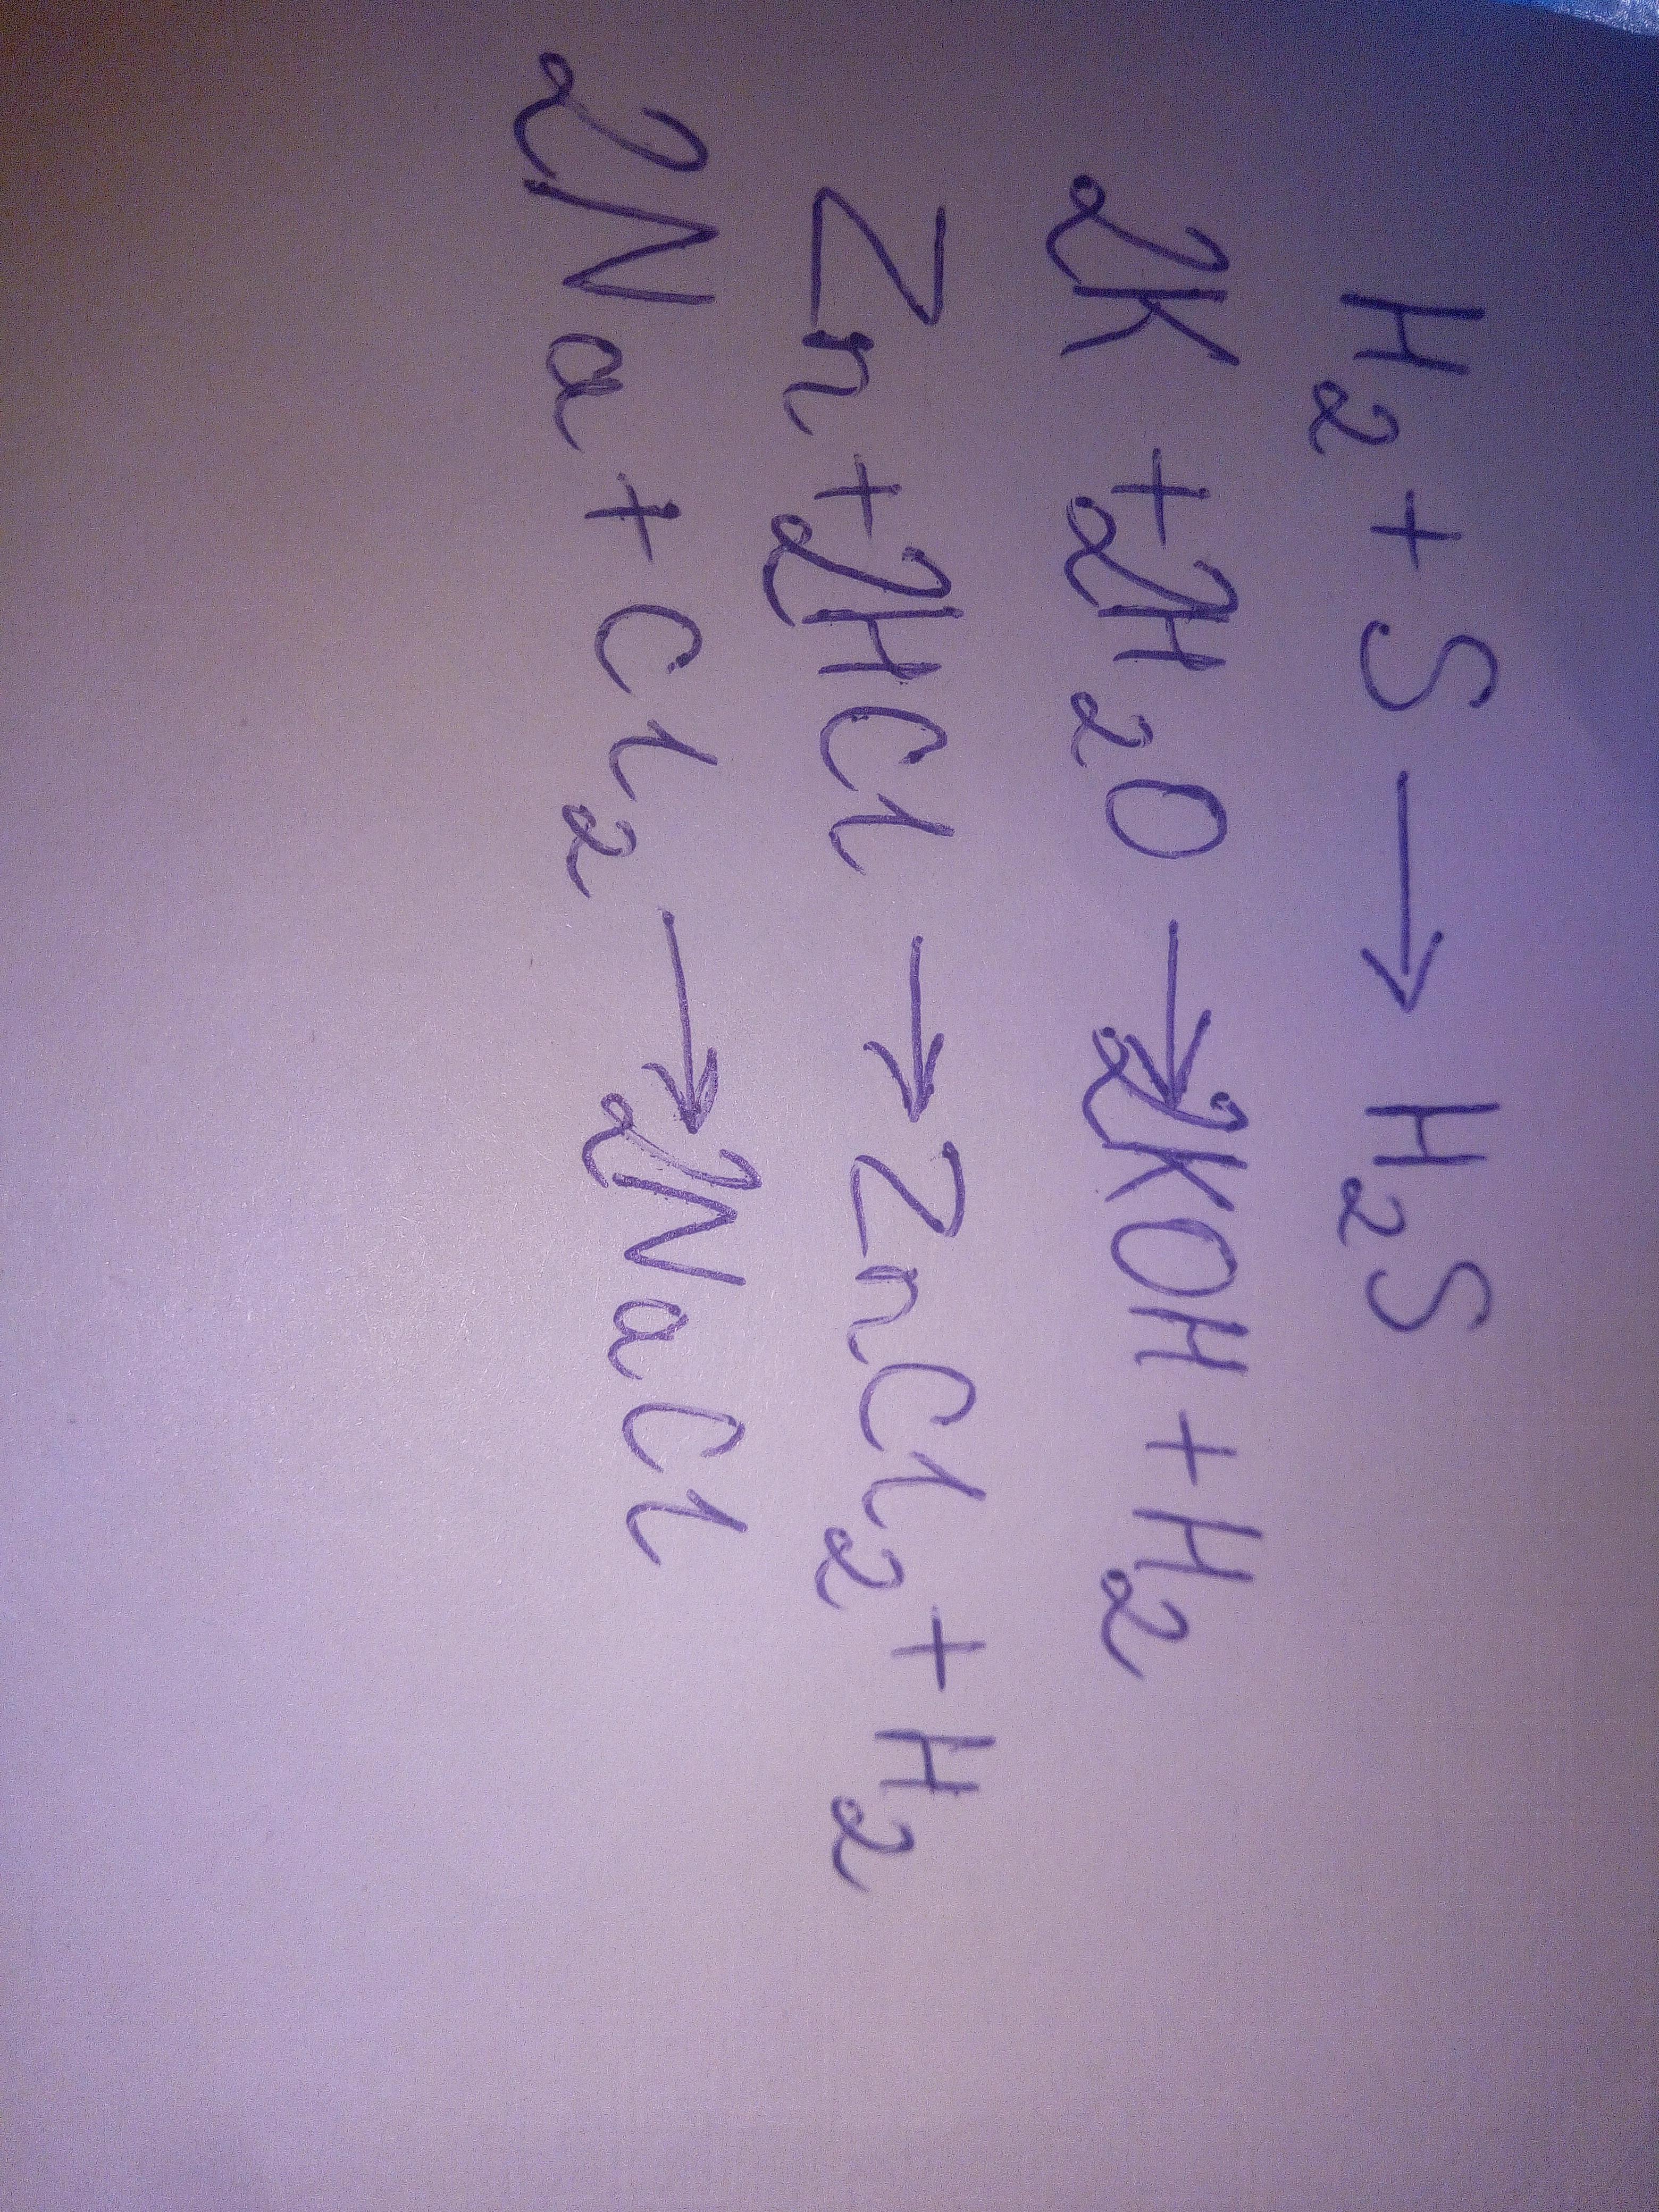 H₂ + S → H₂S
2K + 2H₂O → 2KOH + H₂
Zn + 2HCl → ZnCl₂ + H₂
2Na + Cl₂ → 2NaCl